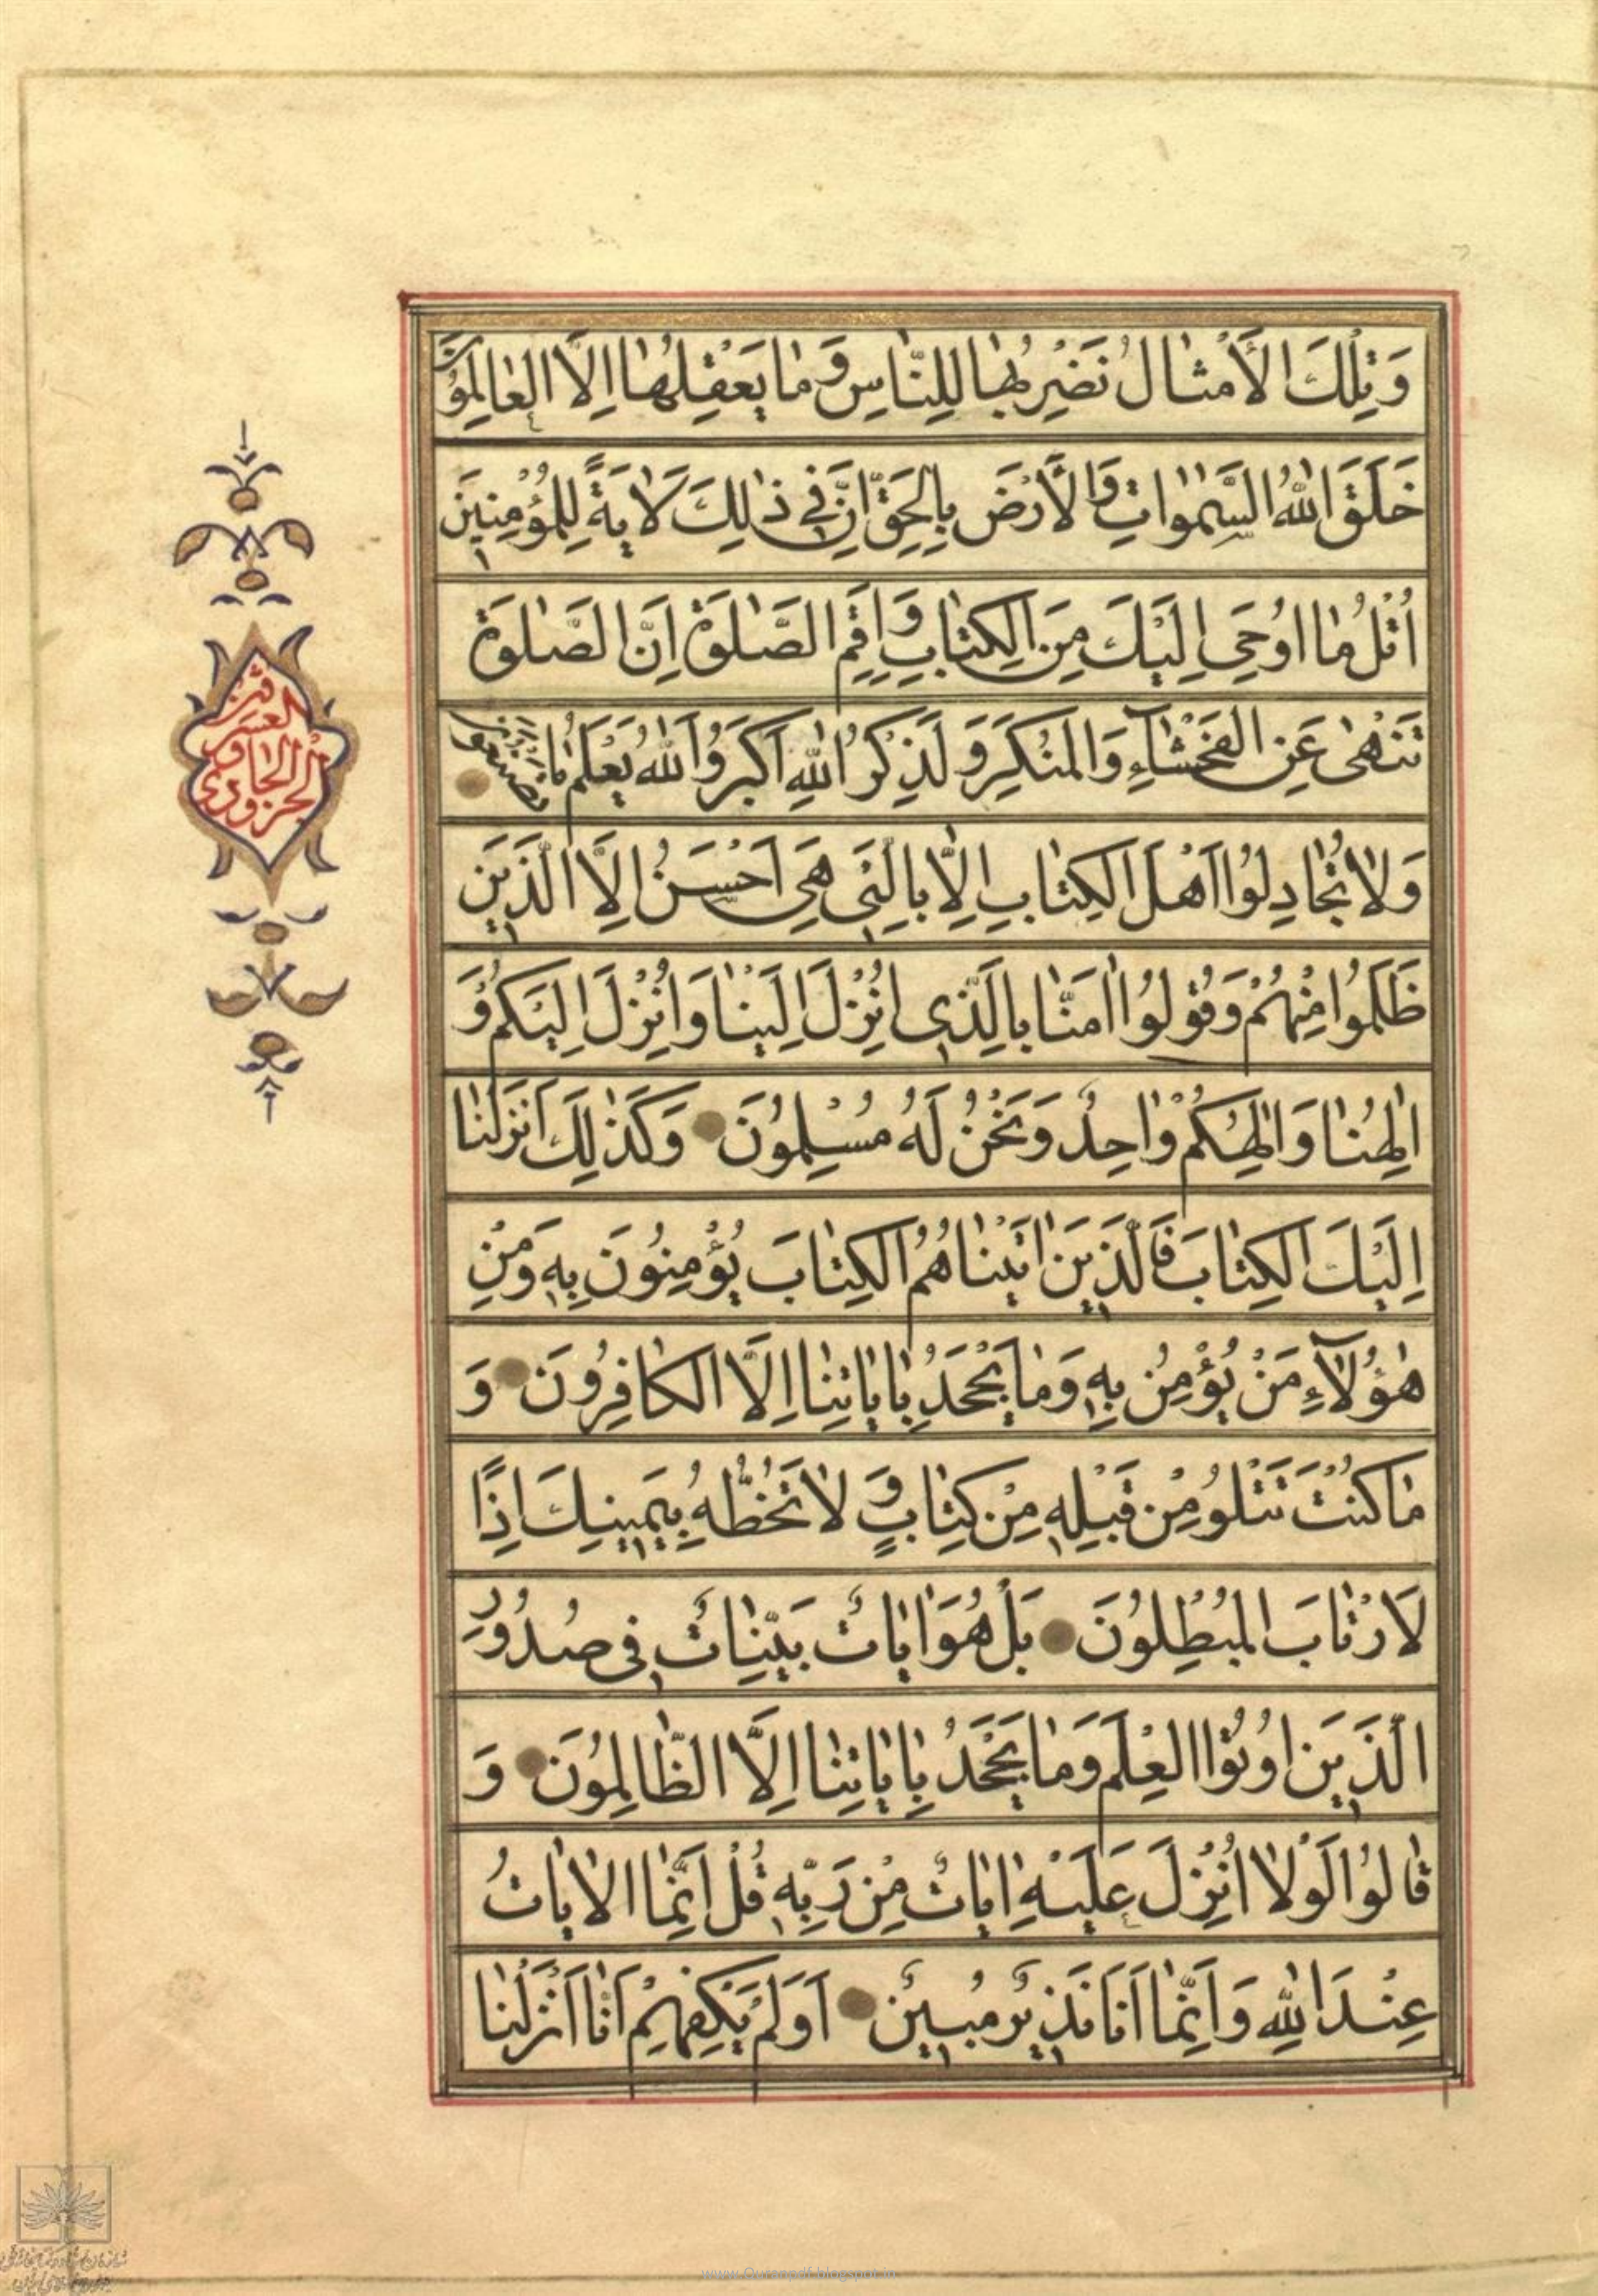 وَتِلْكَ الْأَمْثَالُ نَضْرِبُهَا لِلنَّاسِ وَمَا يَعْقِلُهَا إِلَّا الْعَالِمُونَ
خَلَقَ اللهُ السَّمٰوَاتِ وَالْأَرْضَ بِالْحَقِّ إِنَّ فِي ذٰلِكَ لَاٰيَةً لِلْمُؤْمِنِينَ
اُتْلُ مَا اُوحِيَ اِلَيْكَ مِنَ الْكِتَابِ وَاَقِمِ الصَّلٰوةَ اِنَّ الصَّلٰوةَ
تَنْهٰى عَنِ الْفَحْشَآءِ وَالْمُنْكَرِ وَلَذِكْرُ اللهِ اَكْبَرُ وَاللهُ يَعْلَمُ مَا تَصْنَعُونَ
وَلَا تُجَادِلُوا اَهْلَ الْكِتَابِ اِلَّا بِالَّتِي هِيَ اَحْسَنُ اِلَّا الَّذِينَ
ظَلَمُوا مِنْهُمْ وَقُولُوا اٰمَنَّا بِالَّذِي اُنْزِلَ اِلَيْنَا وَاُنْزِلَ اِلَيْكُمْ وَ
اِلٰهُنَا وَاِلٰهُكُمْ وَاحِدٌ وَنَحْنُ لَهُ مُسْلِمُونَ وَكَذٰلِكَ اَنْزَلْنَا
اِلَيْكَ الْكِتَابَ فَالَّذِينَ اٰتَيْنَاهُمُ الْكِتَابَ يُؤْمِنُونَ بِهِ وَمِنْ
هٰؤُلَآءِ مَنْ يُؤْمِنُ بِهِ وَمَا يَجْحَدُ بِاٰيَاتِنَا اِلَّا الْكَافِرُونَ وَ
مَا كُنْتَ تَتْلُو مِنْ قَبْلِهِ مِنْ كِتَابٍ وَلَا تَخُطُّهُ بِيَمِينِكَ اِذًا
لَارْتَابَ الْمُبْطِلُونَ بَلْ هُوَ اٰيَاتٌ بَيِّنَاتٌ فِي صُدُورِ
الَّذِينَ اُوتُوا الْعِلْمَ وَمَا يَجْحَدُ بِاٰيَاتِنَا اِلَّا الظَّالِمُونَ وَ
قَالُوا لَوْلَا اُنْزِلَ عَلَيْهِ اٰيَاتٌ مِنْ رَبِّهِ قُلْ اِنَّمَا الْاٰيَاتُ
عِنْدَ اللهِ وَاِنَّمَا اَنَا نَذِيرٌ مُبِينٌ اَوَلَمْ يَكْفِهِمْ اَنَّا اَنْزَلْنَا
الجزو
www.Quranpdf.blogspot.in